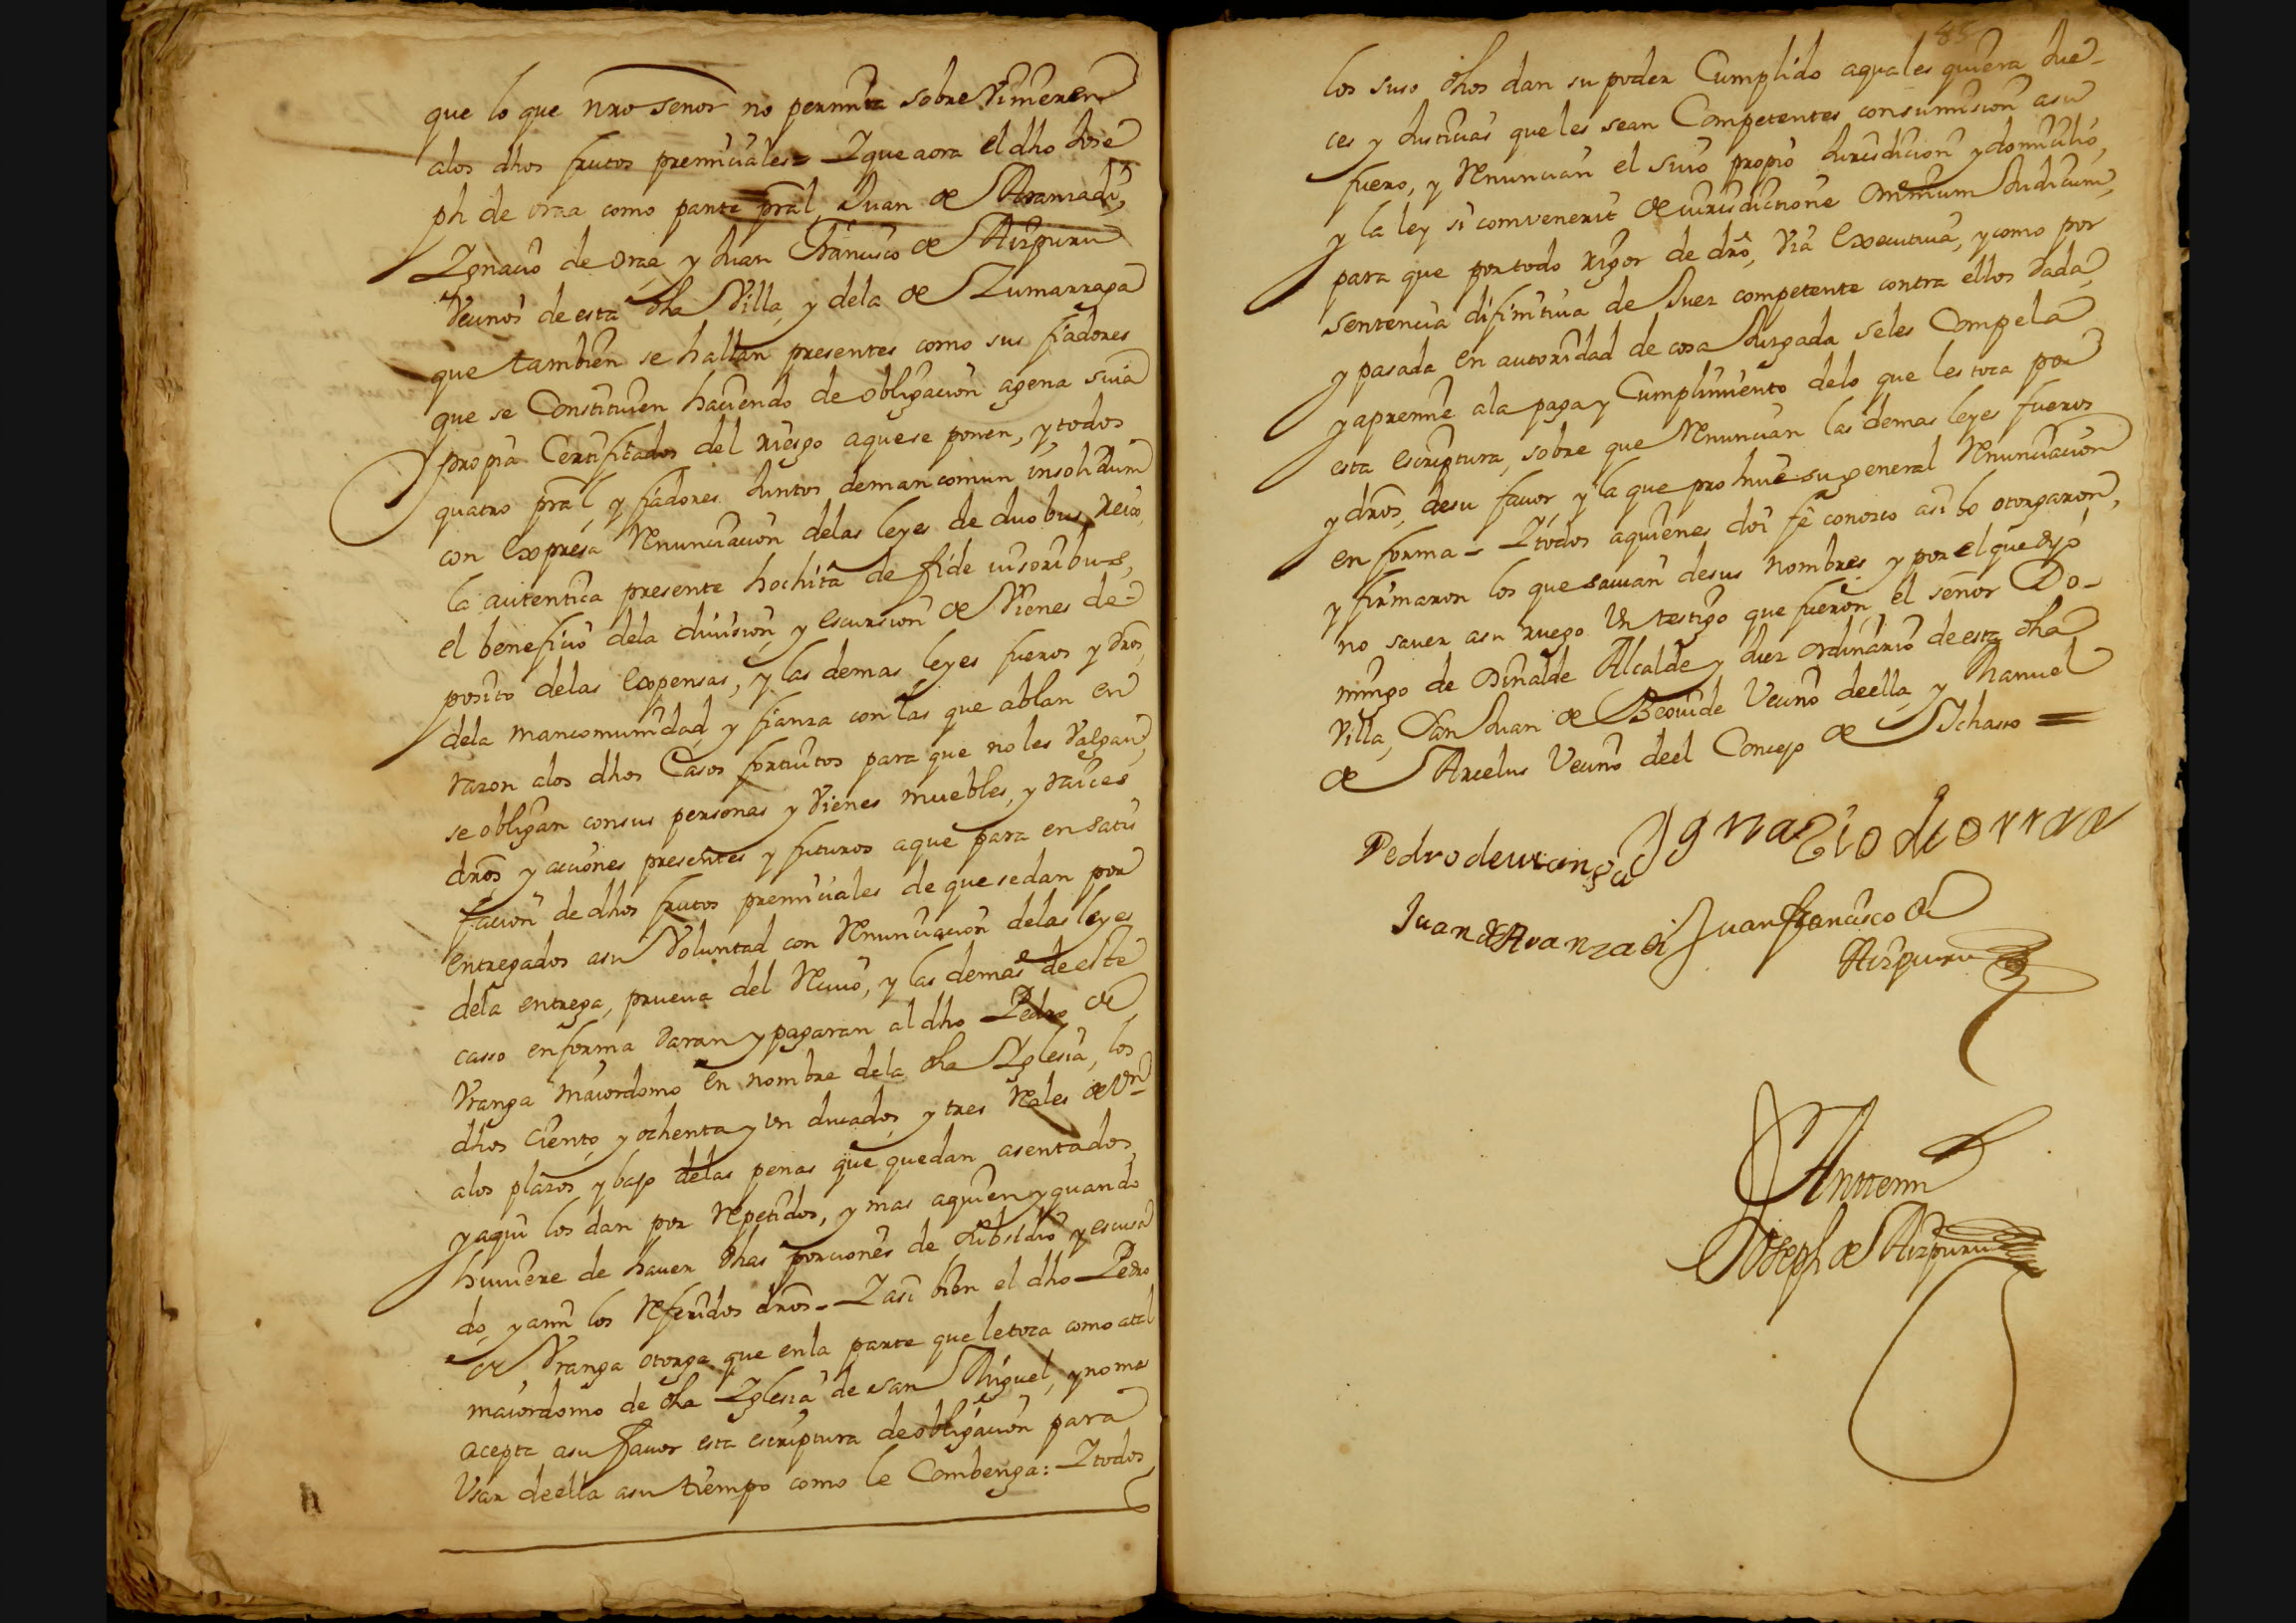 que lo que nro senor no permita sobre Vinieren
alos dhos frutos premiciales = Y que aora el dho Jose
ph de oraa como parte pral, Juan de Aranzadi,
Ygnacio de oraa, y Juan Francisco de Aizpuru
Vecinos de esta dha Villa, y dela de Zumarraga
que tambien se hallan presentes como sus fiadores
que se Constituien haciendo de obligacion agena suia
propia Certificados del riesgo aquese ponen, y todos
quatro pral, y fiadores Juntos demancomun insolidum
con expresa Renunciacion delas leyes de duobus reis,
la autentica presente hochita de fide iusoribus,
el beneficio dela division, y escursion de Vienes de-
posito delas expensas, y las demas leyes fueros y dros,
dela mancomunidad, y fianza con las que ablan en
razon alos dhos Casos fortuitos para que no les Valgan,
se obligan consus personas y Vienes muebles, y raices
dros, y acciones presentes y futuros aque para en satis
facion de dhos frutos premiciales de que sedan por
entregados asu Voluntad con Renunciacion delas leyes
dela entrega, prueva del Recivo, y las demas de este
casso en forma daran y pagaran al dho Pedro de
Vranga maiordomo en nombre dela dha Yglesia, los
dhos Ciento, y ochenta y Vn ducados, y tres Reales de Vn
alos plazos, y bajo delas penas que quedan asentados,
y aqui los dan por Repetidos, y mas aquien y quando
huviere de haver dhas porciones de subsidio y escusa
do, y asin los Referidos dros = Y asi bien el dho Pedro
de Vranga otorga que enla parte que le toca como atal
maiordomo de dha Yglesia de san Miguel, y no mas
acepta asu favor esta escriptura de obligacion para
Vsar deella asu tiempo como le Combenga: Y todos
85
los suso dhos dan su poder Cumplido aquales quiera Jue-
ces y Justicias que les sean Competentes consumision asu
fuero, y Renuncian el suio propio Jurisdicion y domicilio,
y la ley si comvenerit de iurisdictione omnium Judicum,
para que por todo rigor de dro, Via executiva, y como por
sentencia difinitiva de Juez competente contra ellos dada,
y pasada en autoridad de cosa Juzgada seles Compela
y apremie ala paga y Cumplimiento delo que les toca por
esta escriptura, sobre que Renuncian las demas leyes fueros
y dros, desu favor, y la que prohive su general Renunciacion
en forma = Y todos aquienes doi fe conozco asi lo otorgaron,
y firmaron los que savian desus nombres, y por el que dijo
no saver asu ruego Vn testigo que fueron, el señor Do-
mingo de Dinalde Alcalde y Juez ordinario de esta dha
Villa, San Juan de Beovide Vecino deella, y Manuel
de Arcelus Vecino deel Concejo de Ychasso =
Pedro de uranga Ygnazio de orraa
Juan de Aranzadi Juan francisco de
Aizpuru
Antemi
Joseph de Aizpuru